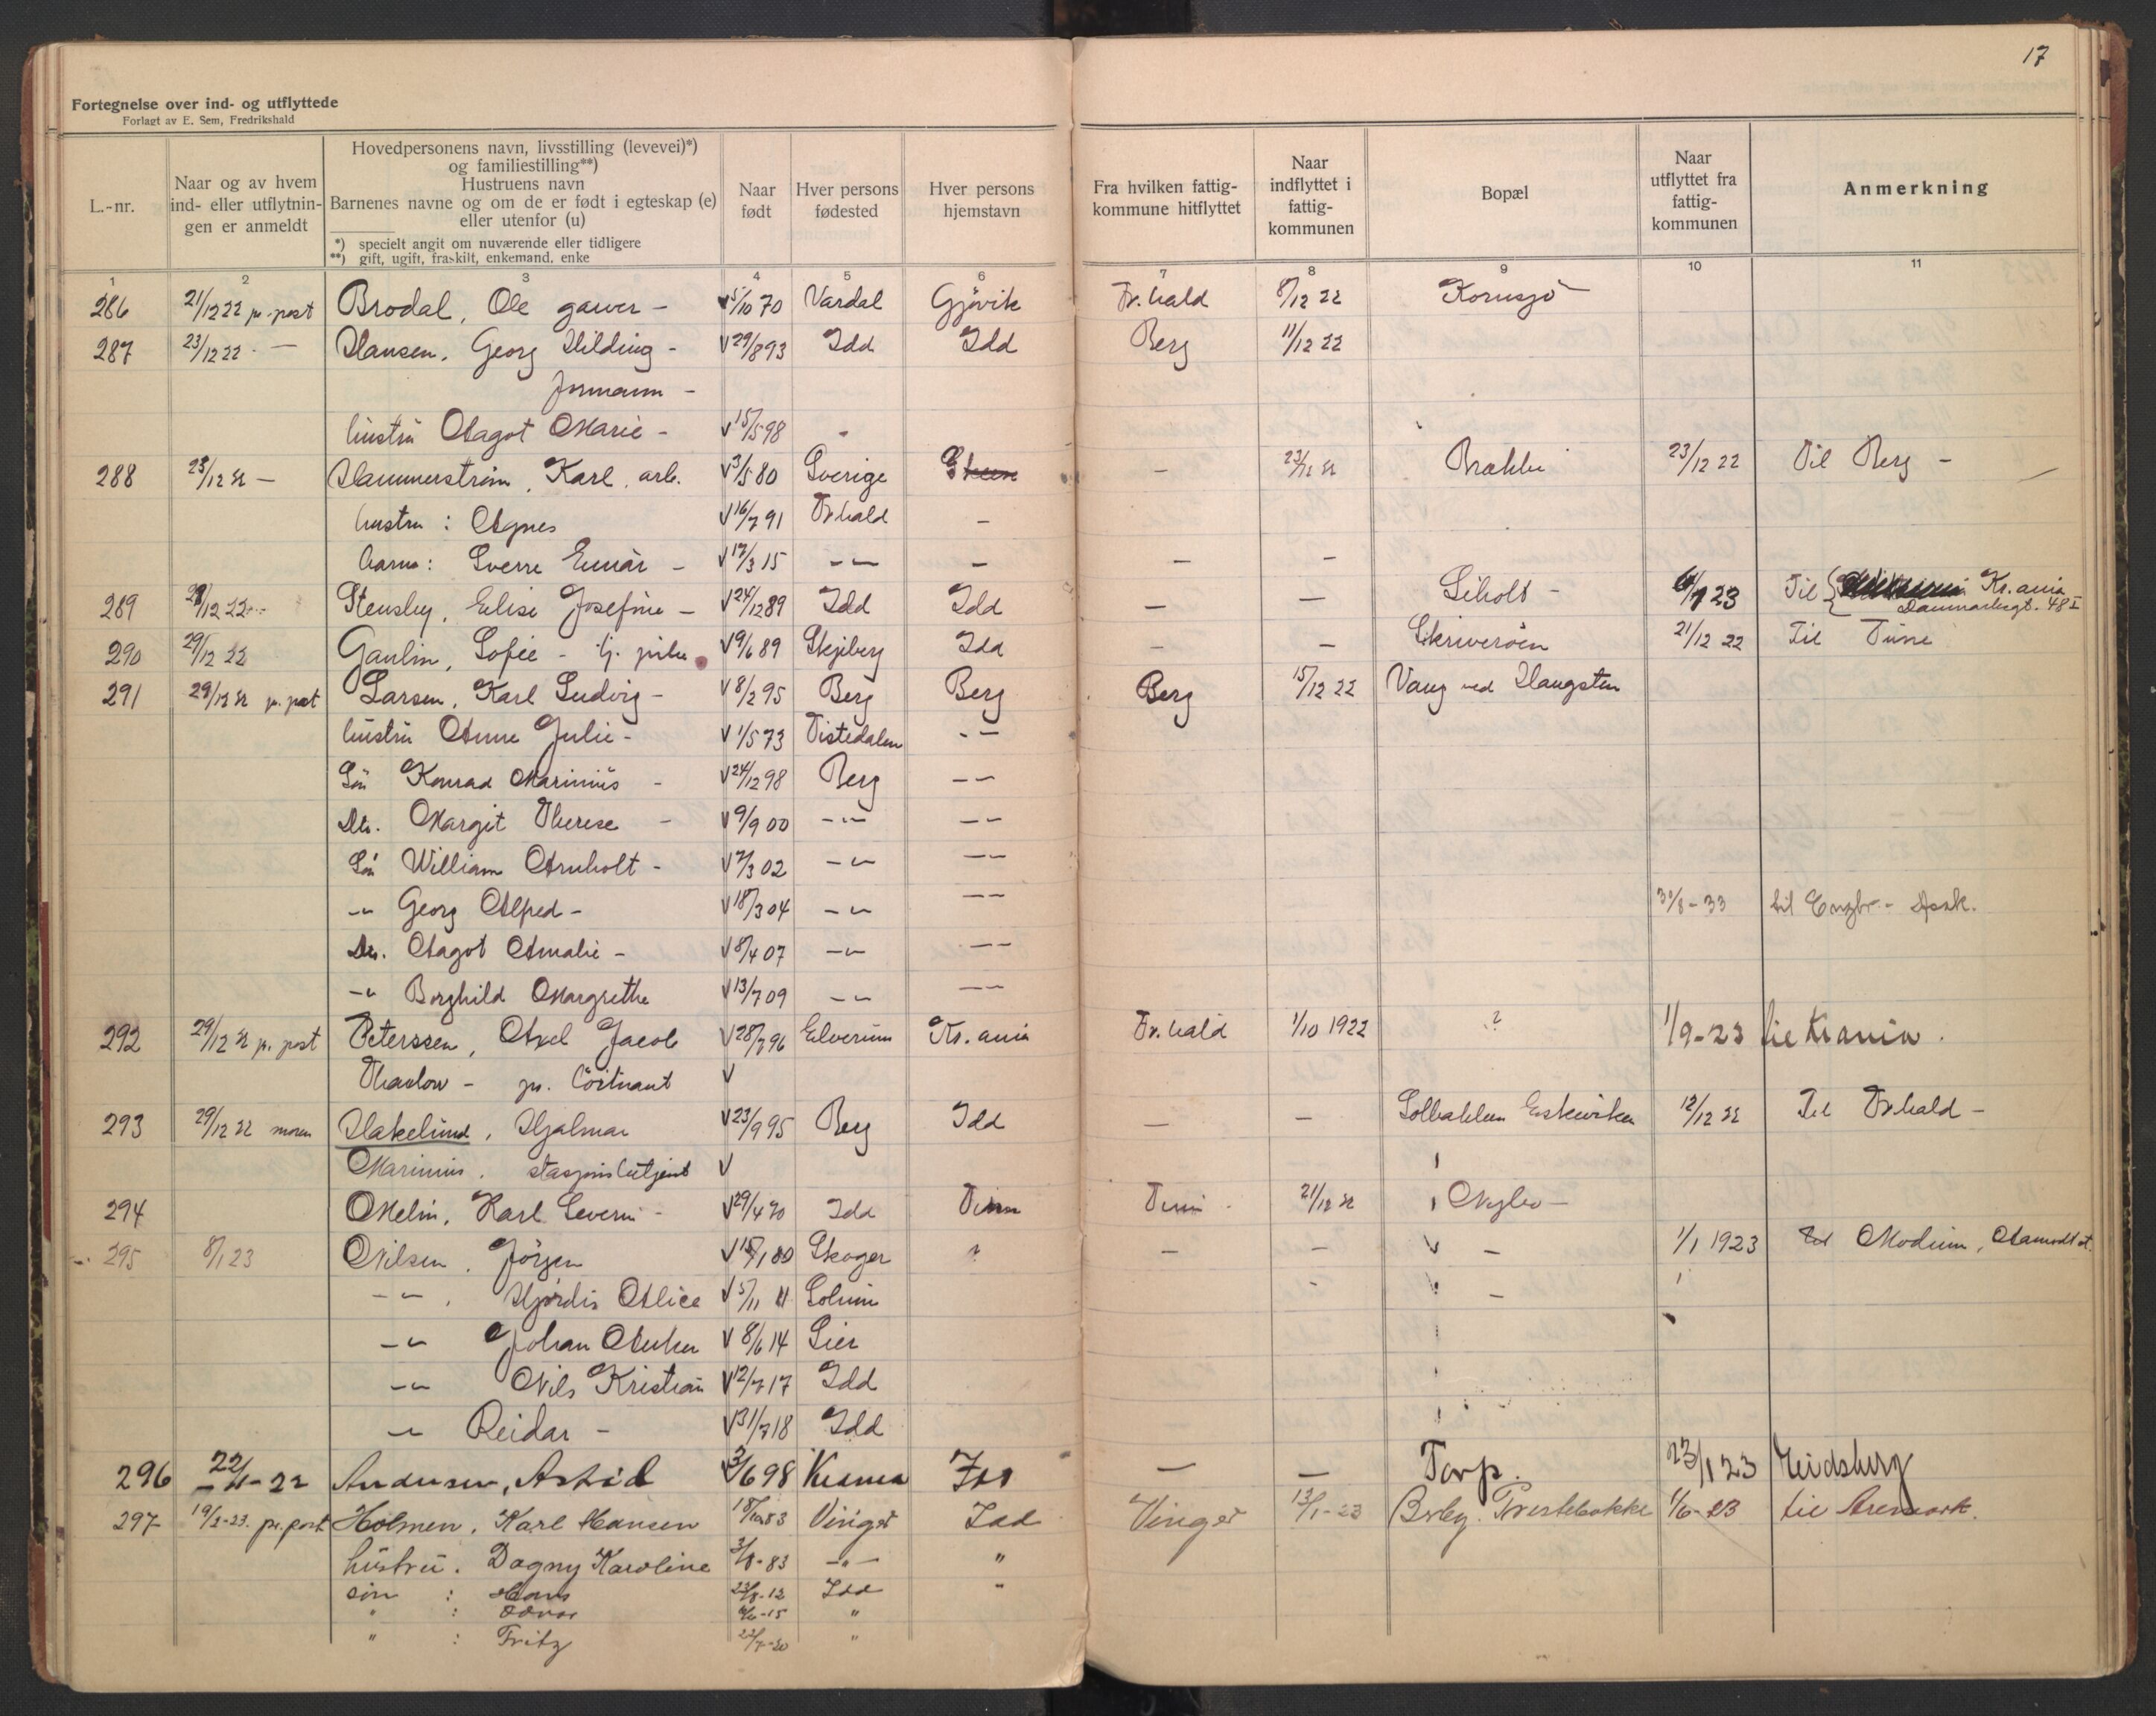 17
Fortegnelse over ind- og utflyttede
Forlagt av E. Sem, Fredrikshald
L.-nr.
Naar og av hvem ind- eller utflytningen er anmeldt
Hovedpersonens navn, livsstilling (levevei)*)
og familiestilling**)
Hustruens navn
Barnenes navne og om de er født i egteskap (e)
eller utenfor (u)
*) specielt angit om nuværende eller tidligere
**) gift, ugift, fraskilt, enkemand, enke
Naar født
Hver persons fødested
Hver persons hjemstavn
Fra hvilken fattigkommune hitflyttet
Naar indflyttet i fattigkommunen
Bopæl
Naar utflyttet fra fattigkommunen
Anmerkning
1 2 3 4 5 6 7 8 9 10 11
286 21/12 22 pr. post Brodal, Ole garver - 5/10 70 Vardal Gjøvik Fr.hald 8/12 22 Kornsjø
287 23/12 22 - Hansen, Georg Hilding - V 29/8 93 Idd Idd Berg 11/12 22
formann -
hustru Aagot Marie - V 15/5 98 -
288 23/12 22 - Hammerstrøm, Karl, arb. V 3/5 80 Sverige - 23/12 22 Brække 23/12 22 Til Berg -
hustru : Agnes V 16/7 91 Fr.hald -
barn : Sverre Einar - V 17/3 15 -"- - - -
289 28/12 22 Stensby, Elise Josefine - V 24/12 89 Idd Idd - - Liholt - 23 Til Kr.ania
Danmarksgt. 48 I
290 29/12 22 Gaulin, Sofie - tj. pike V 9/6 89 Skjeberg Idd - - Skriverøen 21/12 22 Til Tune
291 29/12 22 pr. post Larsen, Karl Ludvig - V 8/2 95 Berg Berg Berg 15/12 22 Vang ved Haugsten
hustru Anne Julie - V 1/5 73 Tistedalen - -
Søn Konrad Marinius - V 24/12 98 Berg - -
Dtr. Margit Therese - V 9/9 00 -"- - -
Søn William Arnholt - V 7/3 02 -"- - -
-"- Georg Alfred - V 18/3 04 -"- - - 30/8 - 33 til Engbr. - Assk.
Dtr. Aagot Amalie - V 8/4 07 -"- - -
-"- Borghild Margrethe V 13/7 09 -"- - -
292 29/12 22 pr. post Peterssen, Axel Jacob V 28/7 96 Elverum Kr.ania Fr.hald 1/10 1922 ? 1/9-23 til Krania.
Thaulow - pr. løitnant V
293 29/12 22 moren Hakelund, Hjalmar V 23/9 95 Berg Idd - - Solbakken Eskeviken 12/12 22 Til Fr.hald -
Marinius. stasjonsbetjent V
294 Melin, Karl Severin - V 29/4 70 Idd Tune Tune 21/12 22 Nybo -
295 8/1 23 Nilsen, Jørgen V 80 Skoger " - - " - 1/1 1923 til Modum, Aamodt st.
-"-. Hjørdis Alice V 5/11 11 Solum
-"- Johan Anker V 8/6 14 Lier
-"- Nils Kristian V 12/7 17 Idd
-"- Reidar - V 31/7 18 Idd
296 22/11-22 Andersen, Astrid V 3/6 98 Krania Idd - - Torp. 23/1 23 Eidsberg
297 19/2-23. pr. post Holmen, Karl Hansen 83 Vinger Idd Vinger 13/1-23 Boby. Prestebakke 1/6-23 til Aremark.
hustru. Dagny Karoline 3/8-83 -"- "
søn : Hans 23/8-12 Idd "
" : Oddvar -15 "
" : Fritz 22/7-20 "